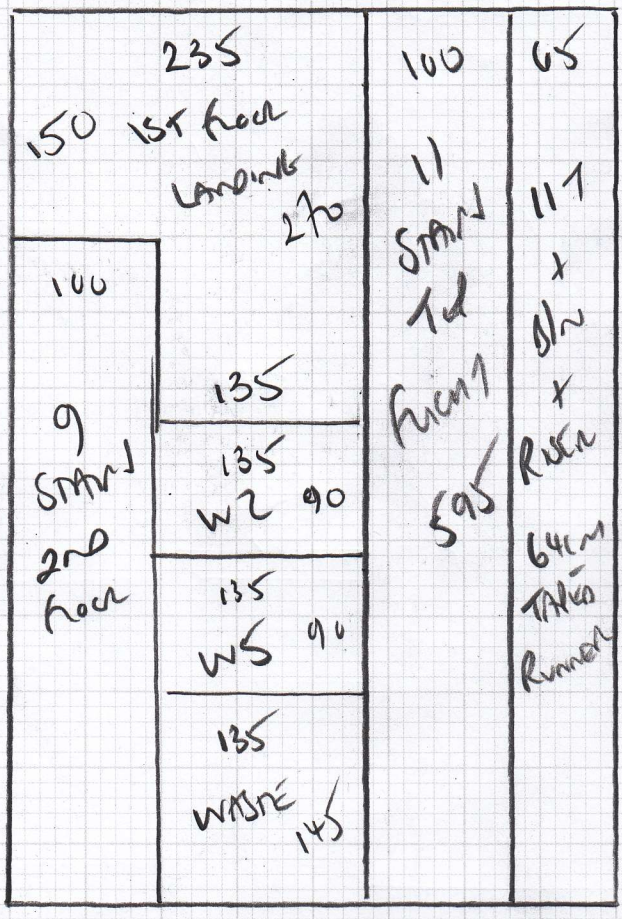 235
150 1ST FLOOR
LANDING
270
135
100
9
STAIRS
2ND
FLOOR
135
W2 90
135
W5 90
135
WASTE
145
100
11
STAIRS
1st
FLIGHT
595
65
11T
+
B/N
+
RISER
64CM
TAPED
RUNNER